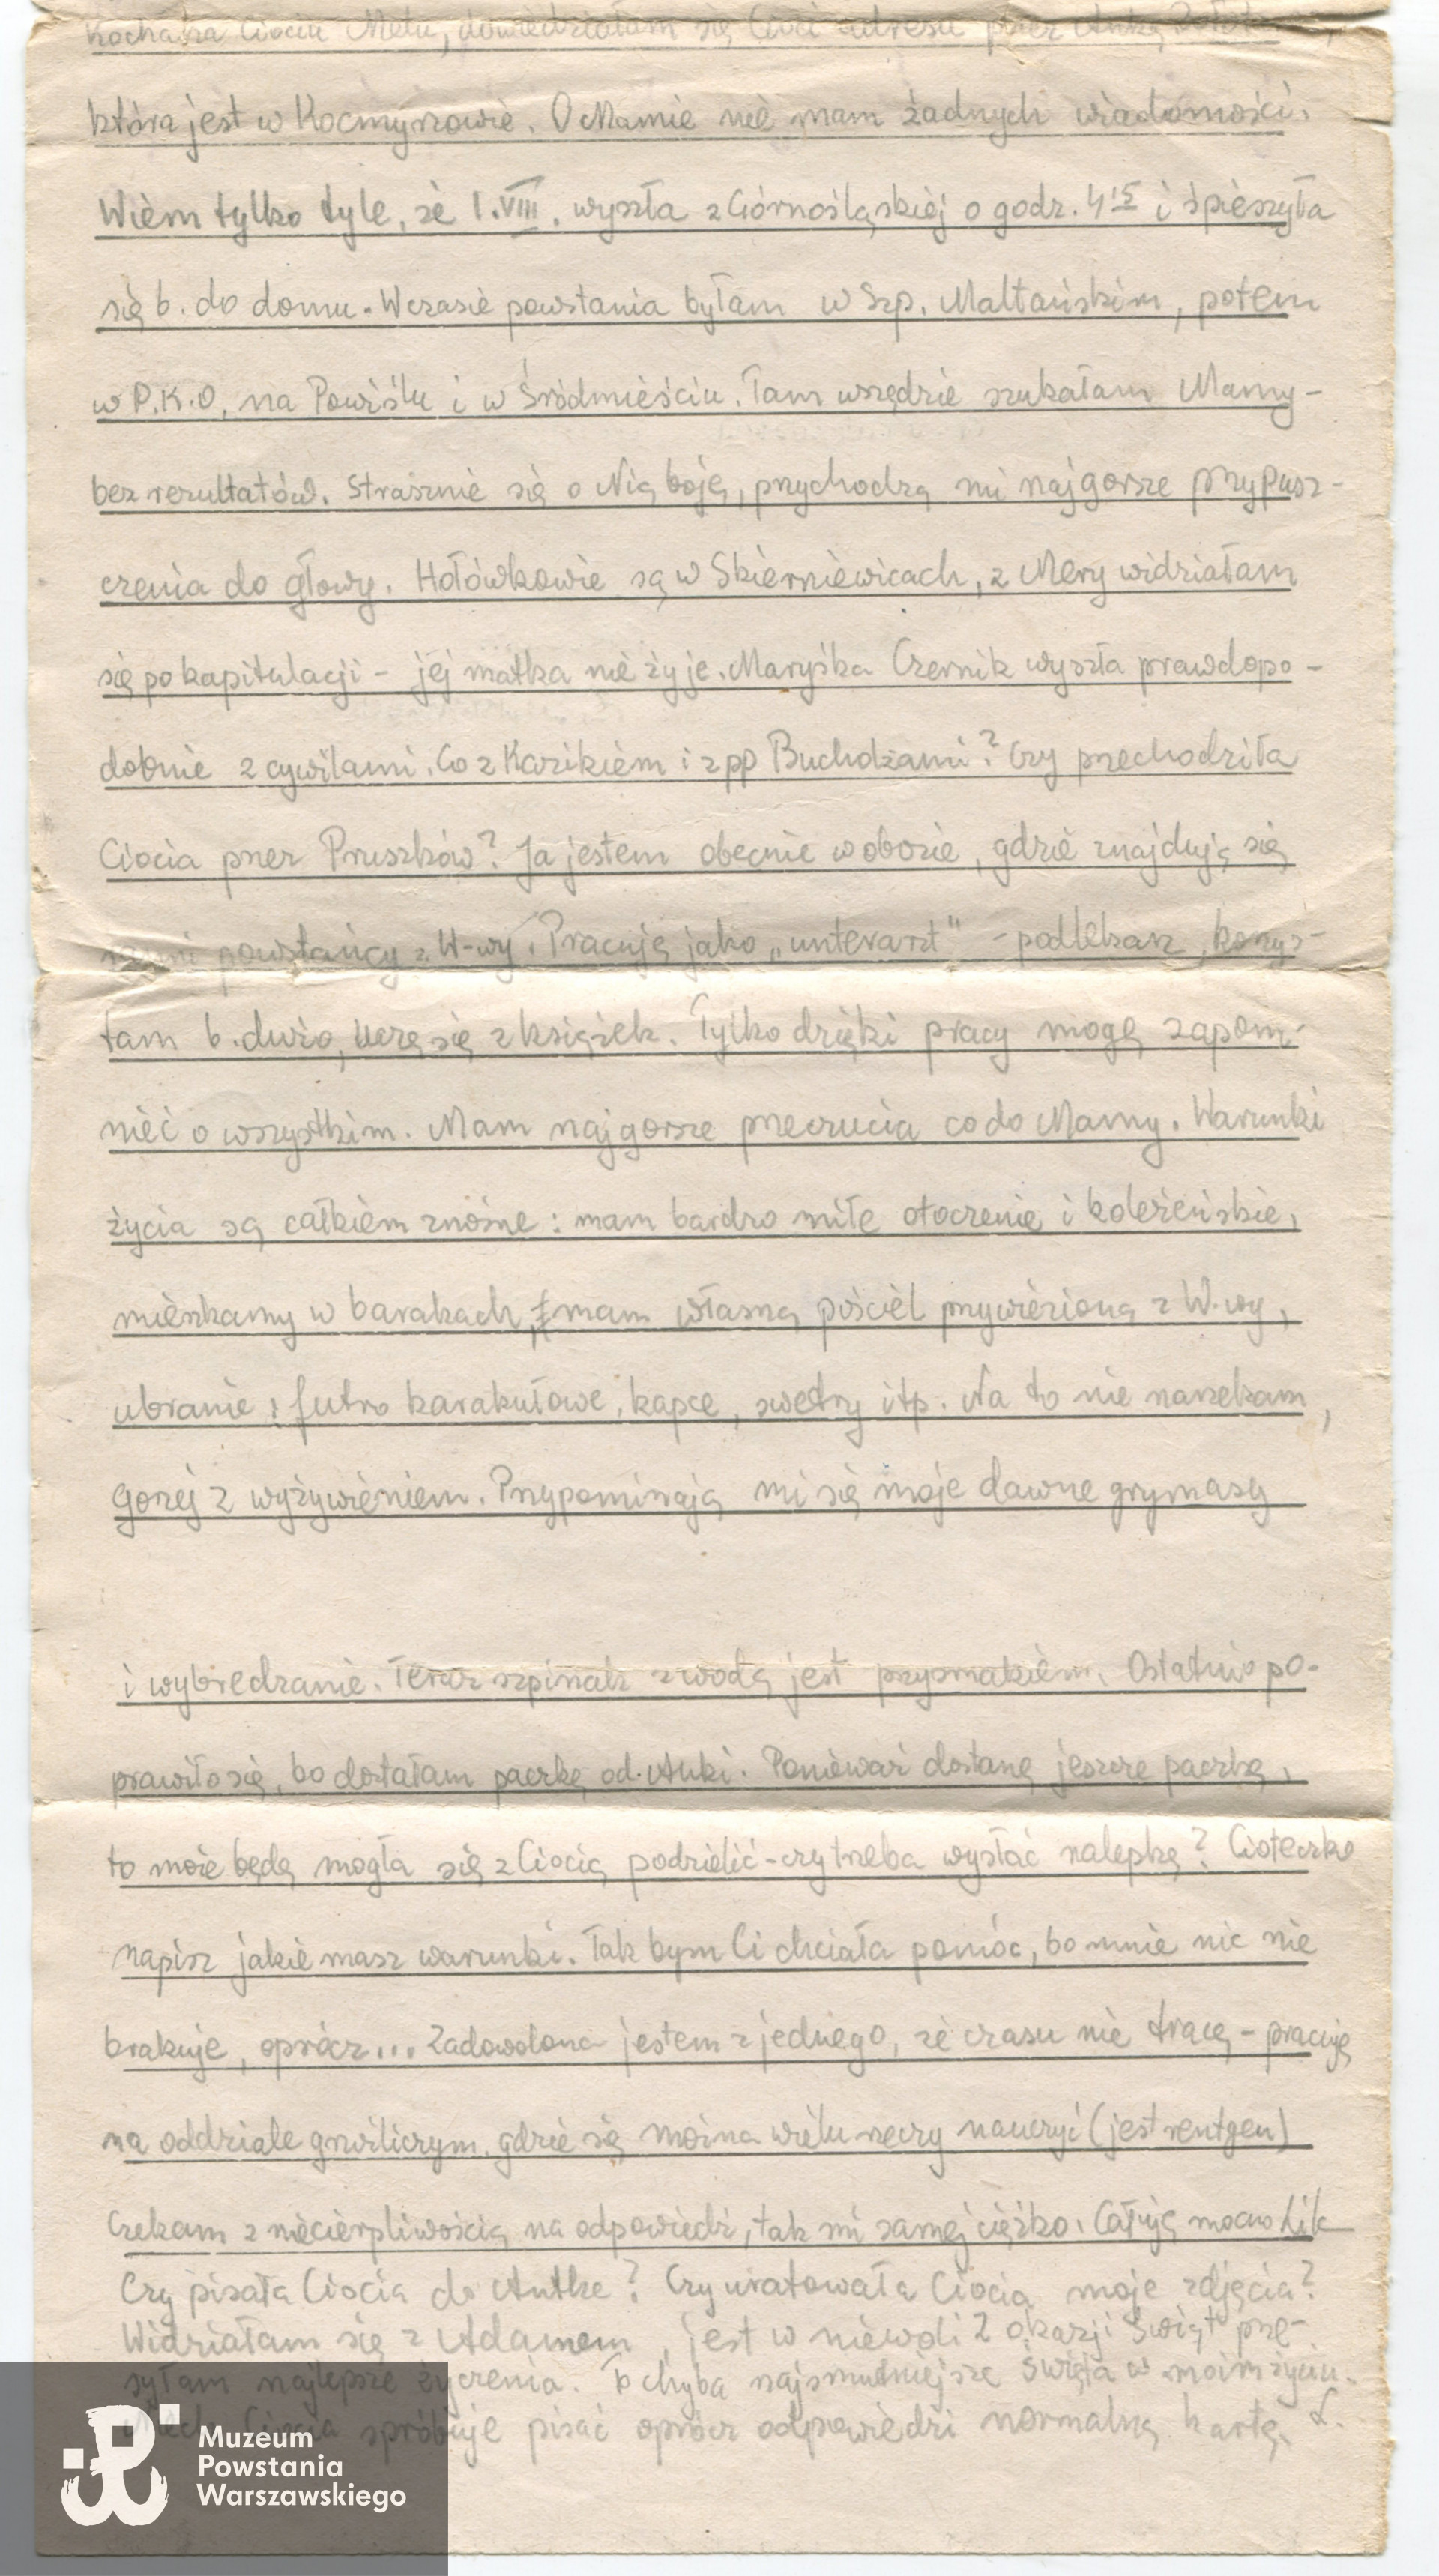 Kochana Ciociu Melu, dowiedziałam się Cioci adresu przez Ankę
która jest w Kocmyrzowie. O Mamie nie mam żadnych wiadomości.
Wiem tylko tyle, że 1.VIII. wyszła z Górnośląskiej o godz. 4¹⁵ i śpieszyła
się b. do domu. W czasie powstania byłam w Szp. Maltańskim, potem
w P.K.O, na Powiślu i w Śródmieściu. Tam wszędzie szukałam Mamy -
bez rezultatów. Strasznie się o Nią boję, przychodzą mi najgorsze przypusz-
czenia do głowy. Hołówkowie są w Skierniewicach, z Mery widziałam
się po kapitulacji - jej matka nie żyje. Maryśka Czernik wyszła prawdopo-
dobnie z cywilami. Co z Kazikiem i z pp Buchdżami? Czy przechodziła
Ciocia przez Pruszków? Ja jestem obecnie w obozie, gdzie znajdują się
sami powstańcy z W-wy. Pracuję jako „unterarzt" - podlekarz, korzys-
tam b. dużo, uczę się z książek. Tylko dzięki pracy mogę zapom-
nieć o wszystkim. Mam najgorsze przeczucia co do Mamy. Warunki
życia są całkiem znośne: mam bardzo miłe otoczenie i koleżeńskie,
mieszkamy w barakach, mam własną pościel przywiezioną z W-wy,
ubranie: futro karakułowe, kapce, swetry itp. Na to nie narzekam,
gorzej z wyżywieniem. Przypominają mi się moje dawne grymasy
i wybredzanie. Teraz szpinak z wodą jest przysmakiem. Ostatnio po-
prawiło się, bo dostałam paczkę od Anki. Ponieważ dostanę jeszcze paczkę,
to może będę mogła się z Ciocią podzielić - czy trzeba wysłać nalepkę? Cioteczko
napisz jakie masz warunki. Tak bym Ci chciała pomóc, bo mnie nic nie
brakuje, oprócz... Zadowolona jestem z jednego, że czasu nie tracę - pracuję
na oddziale gruźliczym, gdzie się można wielu rzeczy nauczyć (jest rentgen)
Czekam z niecierpliwością na odpowiedź, tak mi samej ciężko. Całuję mocno Lik
Czy pisała Ciocia do Antka? Czy uratowała Ciocia moje zdjęcia?
Widziałam się z Adamem, jest w niewoli Z okazji Świąt prze-
syłam najlepsze życzenia. To chyba najsmutniejsze Święta w moim życiu.
Niech Ciocia spróbuje pisać oprócz odpowiedzi normalną kartę. L.
Muzeum
Powstania
Warszawskiego